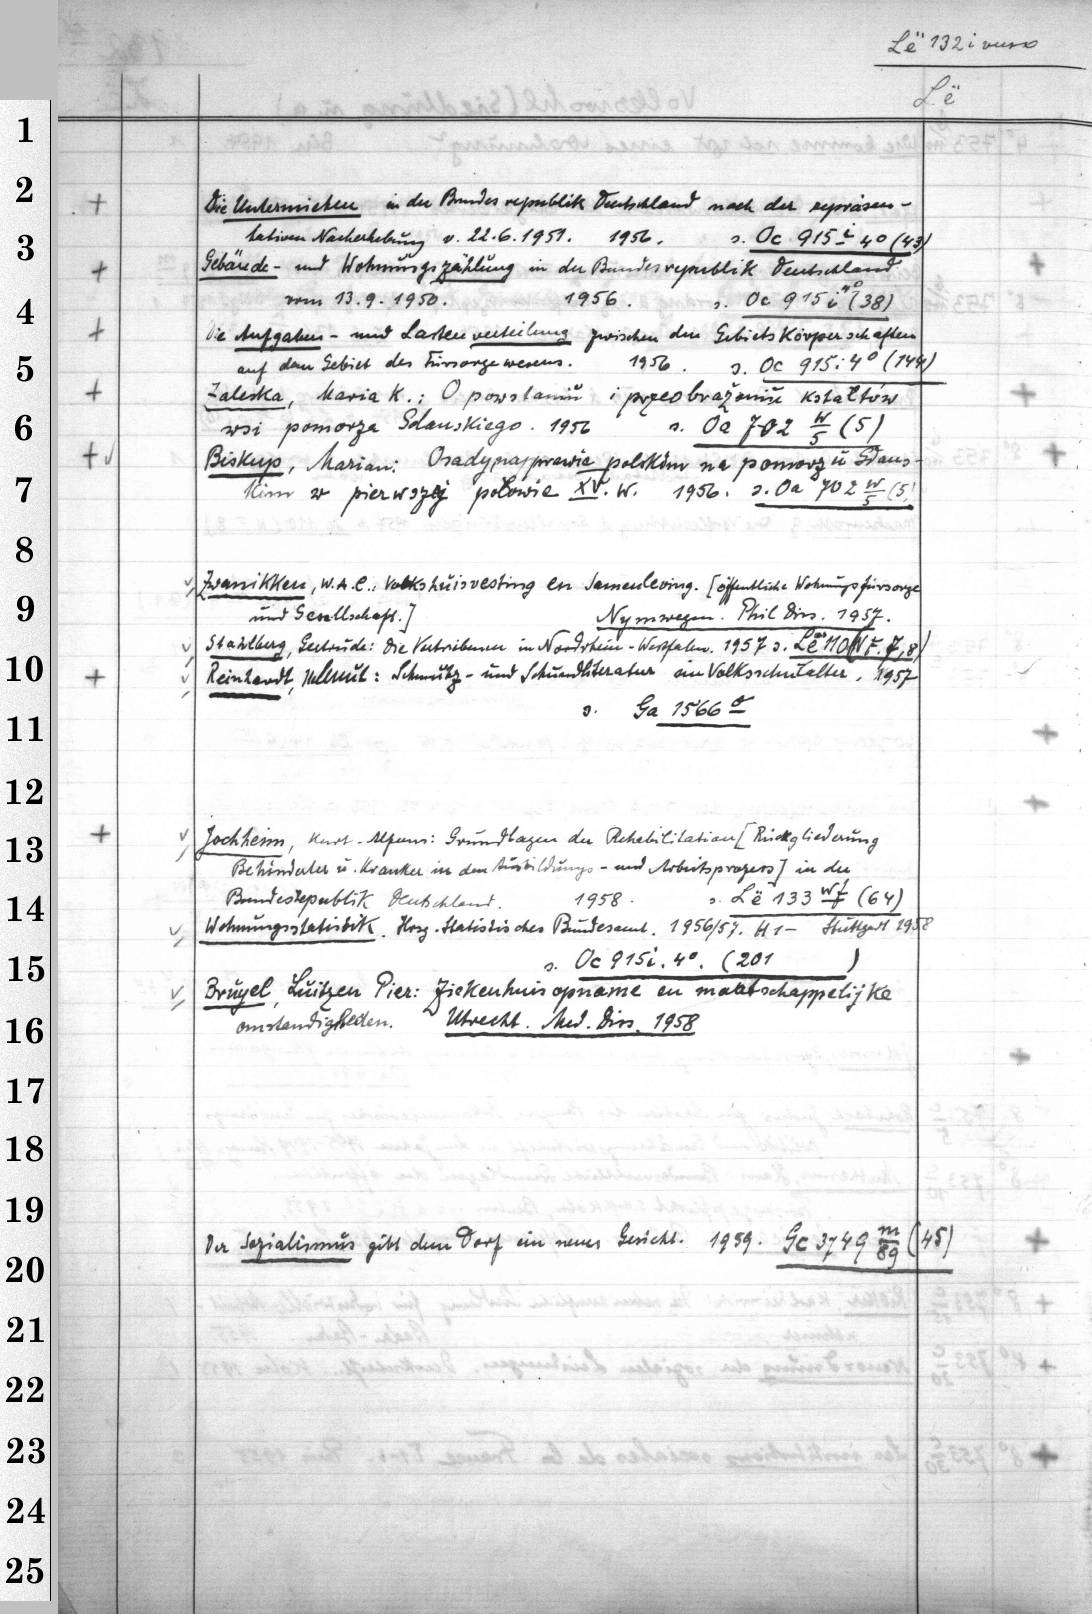 Lë 132 i verso
Lë
1
2
+ Die Untermieten in der Bundesrepublik Deutschland nach der repräsen-
3
tativen Nacherhebung v. 22.6.1951. 1956. s. Oc 915 i 4° (43)
+ Gebäude- und Wohnungszählung in der Bundesrepublik Deutschland
4
vom 13.9.1950. 1956. s. Oc 915 i 4° (38)
+ Die Aufgaben- und Lastenverteilung zwischen den Gebietskörperschaften
5
auf dem Gebiet des Fürsorgewesens. 1956. s. Oc 915 i 4° (144)
+ Zaleska, Maria K.: O powstaniu i przeobrażeniu kształtów
6
wsi pomorza Gdanskiego. 1956 s. Oa 702 w/5 (5)
+ √ Biskup, Marian: Osady na prawie polskim na pomorzu Gdans-
7
kim w pierwszej połowie XV. W. 1956. s. Oa 702 w/5 (5)
8
Zwanikken, W.A.C.: Volkshuisvesting en Samenleving. [öffentliche Wohnungsfürsorge
9
und Gesellschaft.] Nymwegen. Phil Diss. 1957.
Stahlberg, Gertrude: Die Vertriebenen in Nordrhein-Westfalen. 1957 s. Lë 110 (N.F. 7,8)
10
+ Reinhardt, Helmut: Schmutz- und Schundliteratur im Volksschulalter. 1957
s. Ga 1566
11
12
+ Jochheim, Kurt-Alfons: Grundlagen der Rehabilitation [Rückgliederung
13
Behinderter u. Kranker in den Ausbildungs- und Arbeitsprozess] in der
14
Bundesrepublik Deutschland. 1958. s. Lë 133 (64)
Wohnungsstatistik. Hrsg. Statistisches Bundesamt. 1956/57. H 1- Stuttgart 1958
15
s. Oc 915 i. 4°. (201 )
Brügel, Luitzen Pier: Ziekenhuisopname en maatschappelijke
16
omstandigheden. Utrecht. Med. Diss. 1958
17
18
19
Der Sozialismus gibt dem Dorf ein neues Gesicht. 1959. Gc 3749 m/89 (45)
20
21
22
23
24
25